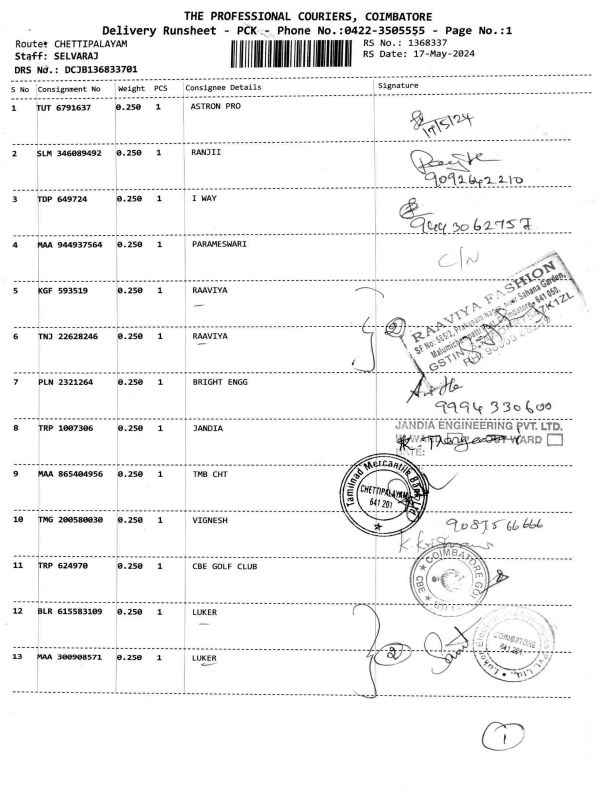 THE PROFESSIONAL COURIERS, COIMBATORE
Delivery Runsheet - PCK - Phone No.:0422-3505555 - Page No.:1
Route: CHETTIPALAYAM
RS No.: 1368337
Staff: SELVARAJ
RS Date: 17-May-2024
DRS No.: DCJB136833701
S No Consignment No Weight PCS Consignee Details Signature
1 TUT 6791637 0.250 1 ASTRON PRO
17/5/24
2 SLM 346089492 0.250 1 RANJII
9092642210
3 TDP 649724 0.250 1 I WAY
9443062757
4 MAA 944937564 0.250 1 PARAMESWARI
C/N
5 KGF 593519 0.250 1 RAAVIYA
2
RAAVIYA FASHION
6 TNJ 22628246 0.250 1 RAAVIYA
7 PLN 2321264 0.250 1 BRIGHT ENGG
9994330600
8 TRP 1007306 0.250 1 JANDIA
JANDIA ENGINEERING PVT. LTD.
9 MAA 865404956 0.250 1 TMB CHT
Tamilnad Mercantile Bank Ltd
CHETTIPALAYAM
641 201
10 TMG 200580030 0.250 1 VIGNESH
11 TRP 624970 0.250 1 CBE GOLF CLUB
CBE COIMBATORE
12 BLR 615583109 0.250 1 LUKER
2
COIMBATORE
641 201
13 MAA 300908571 0.250 1 LUKER
1